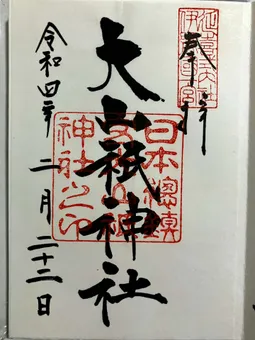 奉拝
大山祇神社
令和四年二月二十二日
日本總鎮
神社之印